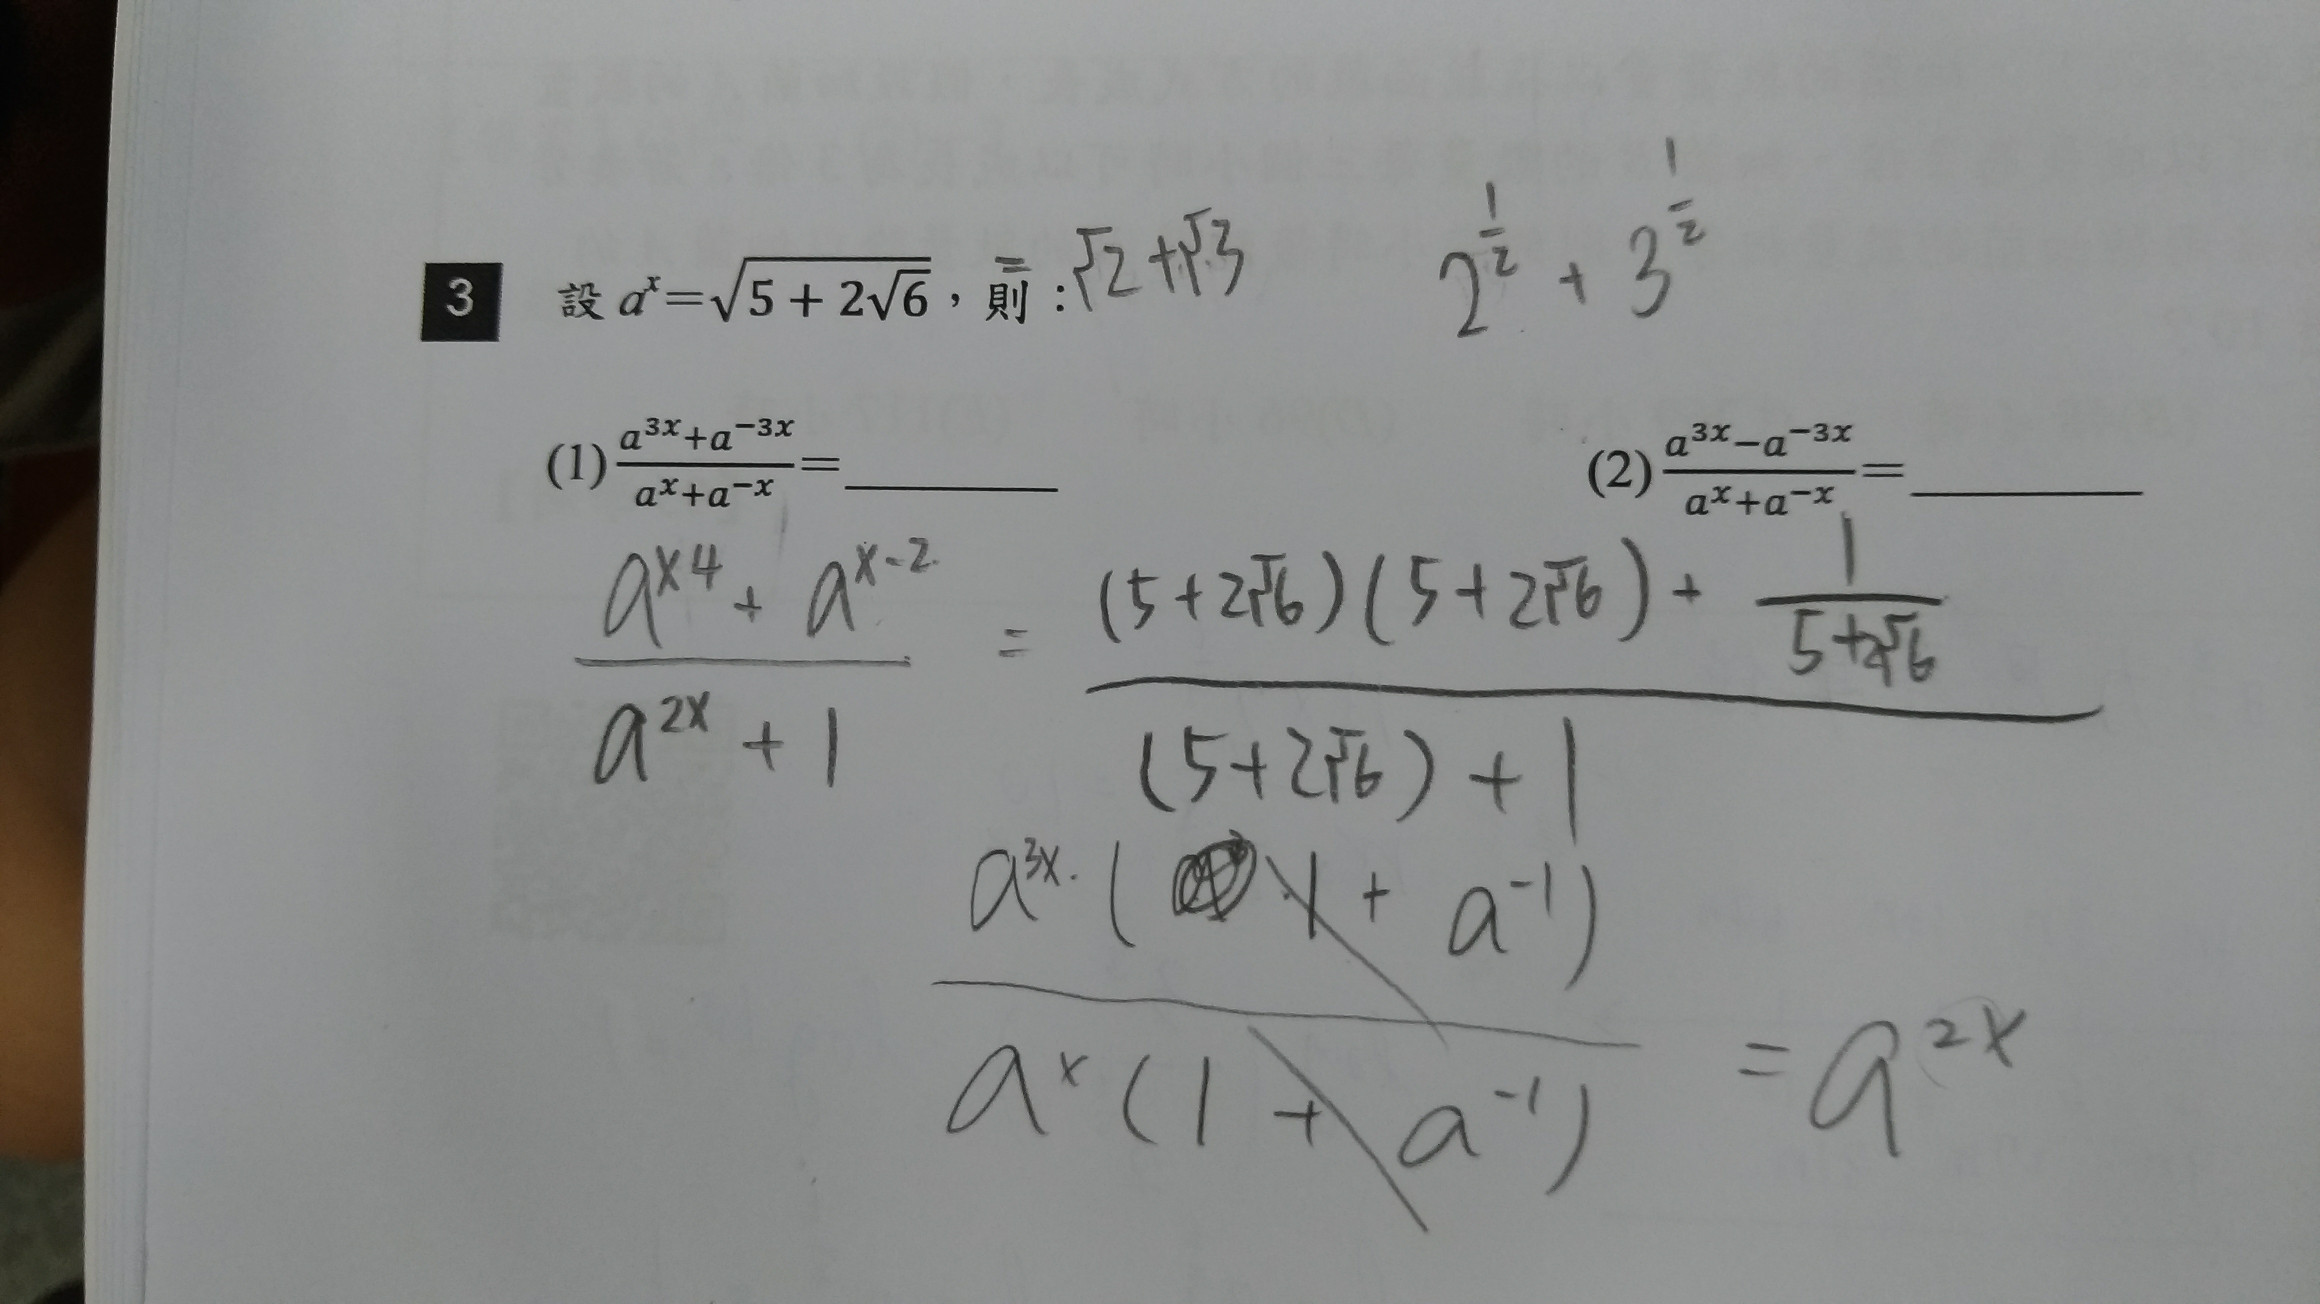 3 設 aˣ=√(5 + 2√6),則: = √2 + √3    2^(1/2) + 3^(1/2)
(1) (a³ˣ+a⁻³ˣ)/(aˣ+a⁻ˣ)=______    (2) (a³ˣ−a⁻³ˣ)/(aˣ+a⁻ˣ)=______
(a^(x4) + a^(x-2))/(a^(2x) + 1) = ((5+2√6)(5+2√6) + 1/(5+2√6))/((5+2√6) + 1)
(a^(3x)·(1 + a⁻¹))/(a^x(1 + a⁻¹)) = a^(2x)